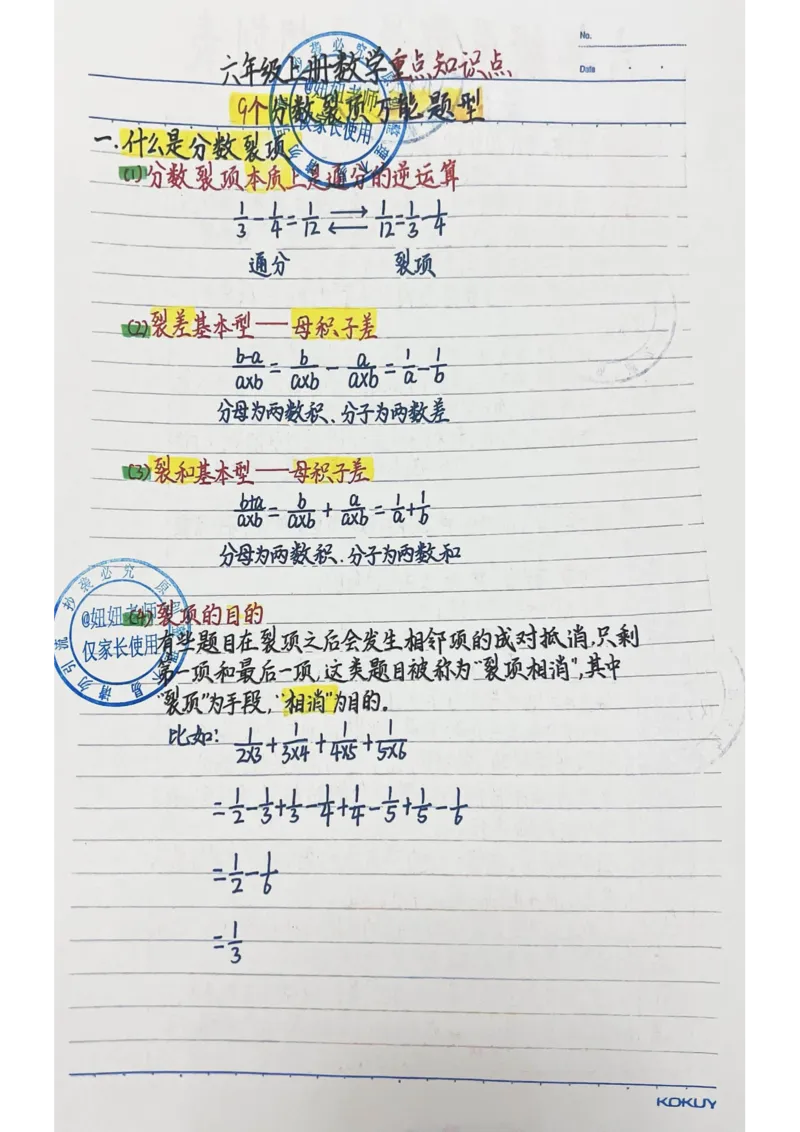 No.
Data
六年级上册数学重点知识点
9个分数裂项万能题型
一.什么是分数裂项
(1)分数裂项本质上是通分的逆运算
1/3-1/4=1/12 ⇄ 1/12=1/3-1/4
通分 裂项
(2)裂差基本型——母积子差
b-a/a×b=b/a×b-a/a×b=1/a-1/b
分母为两数积、分子为两数差
(3)裂和基本型——母积子差
b+a/a×b=b/a×b+a/a×b=1/a+1/b
分母为两数积.分子为两数和
(4)裂项的目的
有些题目在裂项之后会发生相邻项的成对抵消,只剩
第一项和最后一项,这类题目被称为"裂项相消",其中
"裂项"为手段,"相消"为目的。
比如: 1/2×3+1/3×4+1/4×5+1/5×6
=1/2-1/3+1/3-1/4+1/4-1/5+1/5-1/6
=1/2-1/6
=1/3
@妞妞老师
仅家长使用
抄袭必究
请勿引流
KOKUY